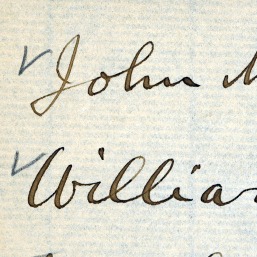 ✓ John
✓ William